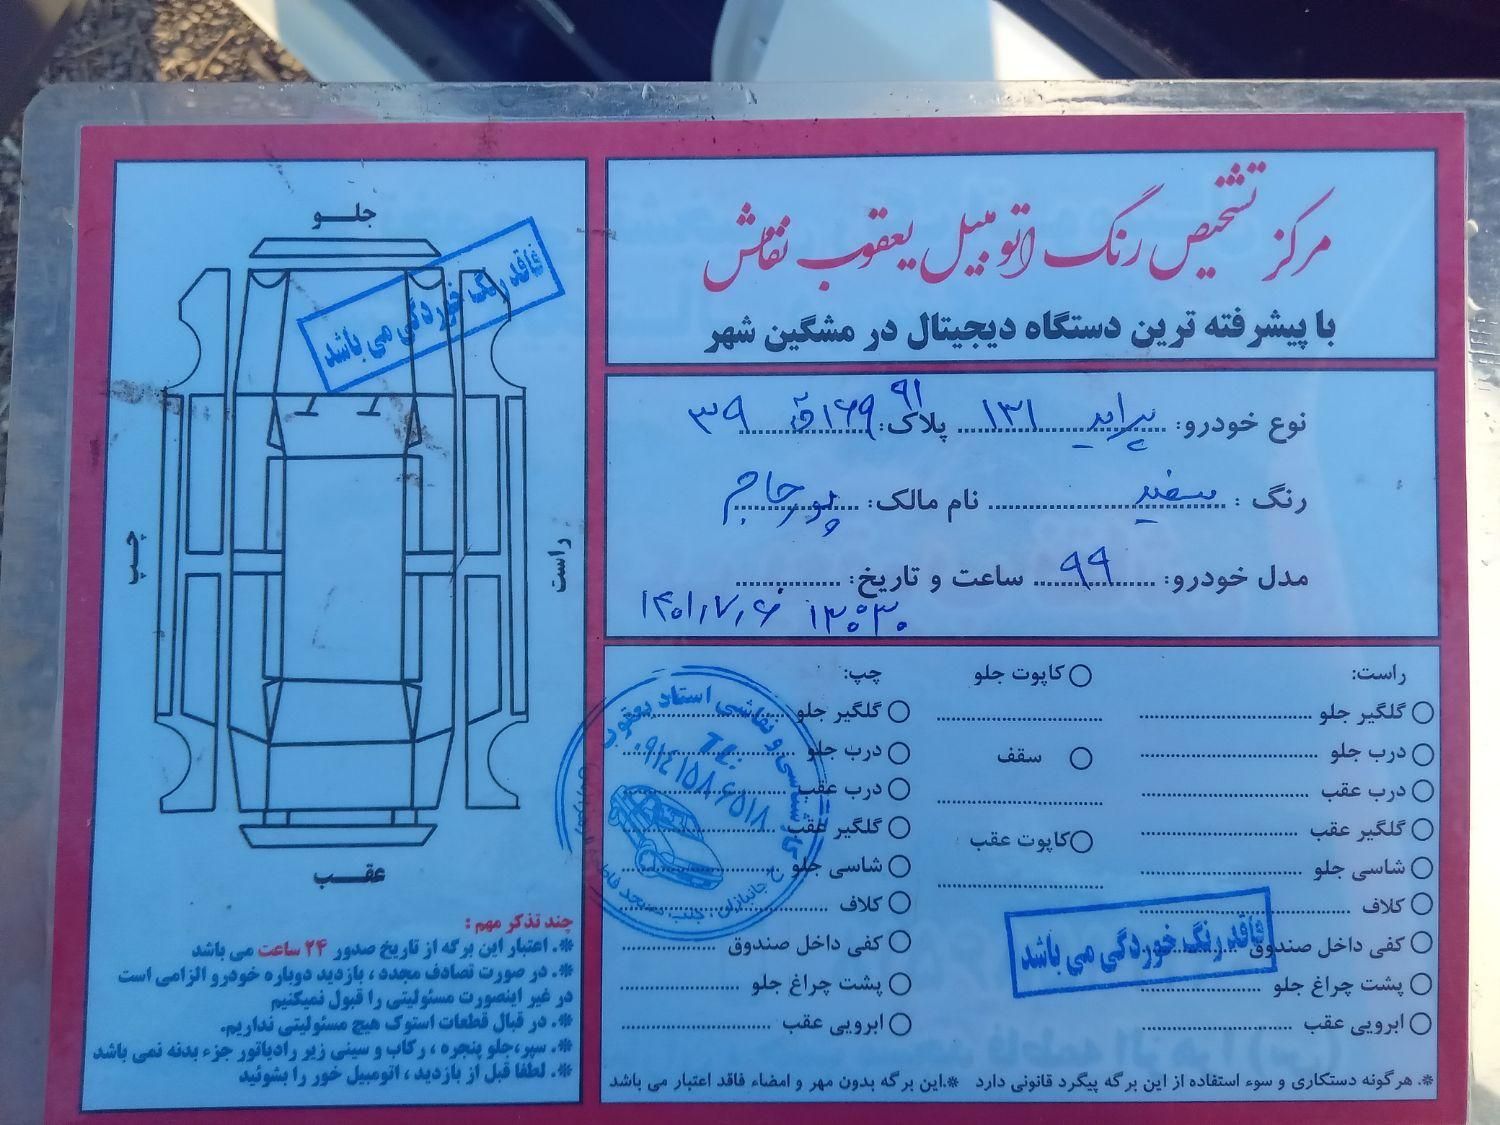 مرکز تشخیص رنگ اتومبیل یعقوب نقاش
با پیشرفته ترین دستگاه دیجیتال در مشگین شهر
نوع خودرو: پراید ۱۳۱ پلاک: ۹۱ ۱۶۹ ق ۳۹
رنگ : سفید نام مالک: پورحاجم
مدل خودرو: ۹۹ ساعت و تاریخ:
۱۳:۳۰ ۱۴۰۱/۷/۶
راست:
گلگیر جلو
درب جلو
درب عقب
گلگیر عقب
شاسی جلو
کلاف
کفی داخل صندوق
پشت چراغ جلو
ابرویی عقب
کاپوت جلو
سقف
کاپوت عقب
چپ:
گلگیر جلو
درب جلو
درب عقب
گلگیر عقب
شاسی جلو
کلاف
کفی داخل صندوق
پشت چراغ جلو
ابرویی عقب
فاقد رنگ خوردگی می باشد
کارشناسی و نقاشی استاد یعقوب
۰۹۱۴۱۵۸۶۵۱۸
*. هرگونه دستکاری و سوء استفاده از این برگه پیگرد قانونی دارد *.این برگه بدون مهر و امضاء فاقد اعتبار می باشد
جلــو
فاقد رنگ خوردگی می باشد
چپ
راست
عقــب
چند تذکر مهم :
*. اعتبار این برگه از تاریخ صدور ۲۴ ساعت می باشد
*. در صورت تصادف مجدد ، بازدید دوباره خودرو الزامی است
در غیر اینصورت مسئولیتی را قبول نمیکنیم
*. در قبال قطعات استوک هیچ مسئولیتی نداریم.
*. سپر،جلو پنجره ، رکاب و سینی زیر رادیاتور جزء بدنه نمی باشد
*. لطفا قبل از بازدید ، اتومبیل خور را بشوئید